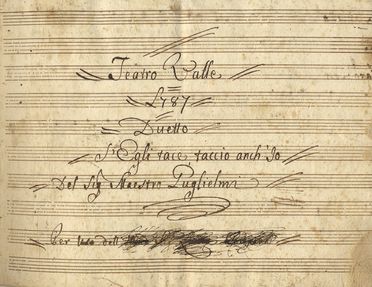 Teatro Valle
1787
Duetto
S'Egli tace, taccio anch'Io
Del Sig Maestro Puglielmi
Per uso dell